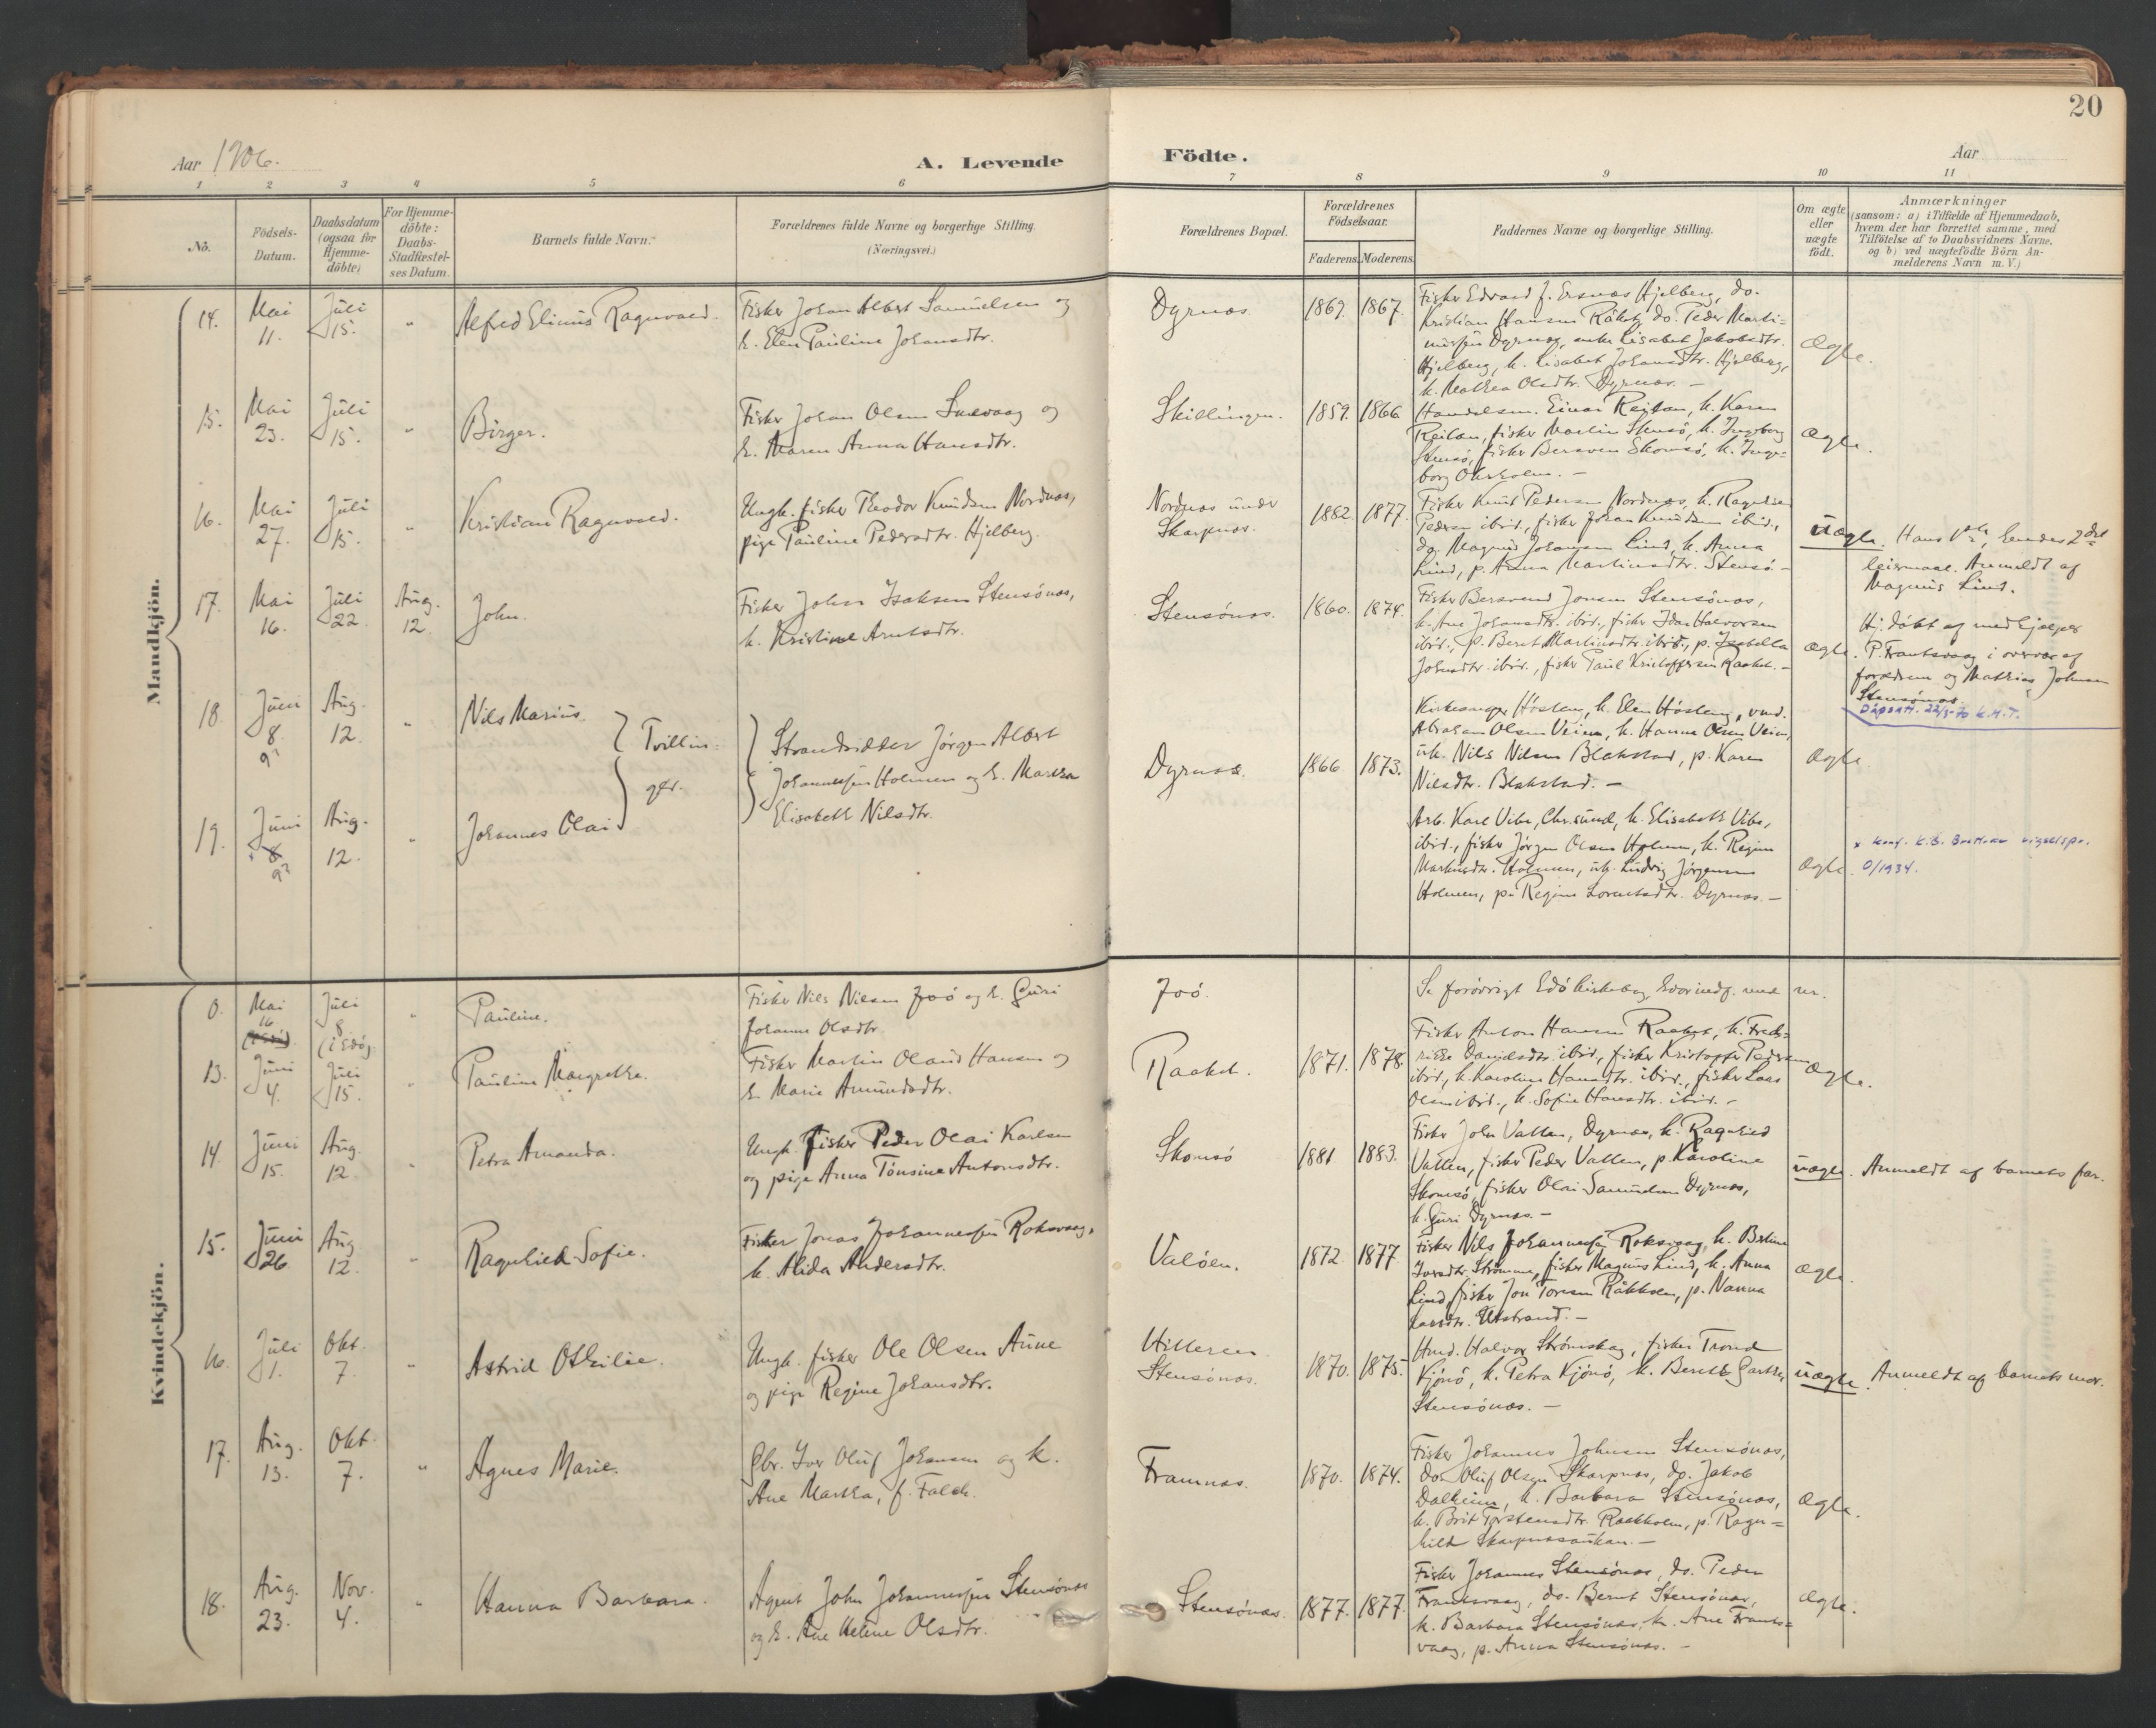 20
Aar 1906.
A. Levende Födte.
Aar
1 2 3 4 5 6 7 8 9 10 11
No.
Födsels-Datum.
Daabsdatum (ogsaa for Hjemme-döbte)
For Hjemme-döbte: Daabs-Stadfæstel-ses Datum.
Barnets fulde Navn.
Forældrenes fulde Navne og borgerlige Stilling. (Næringsvei.)
Forældrenes Bopæl.
Forældrenes Födselsaar.
Faderens. Moderens.
Faddernes Navne og borgerlige Stilling.
Om ægte eller uægte födt.
Anmærkninger
(saasom: a) i Tilfælde af Hjemmedaab,
hvem der har forrettet samme, med
Tilföielse af to Daabsvidners Navne.
og b) ved uægtefödte Börn An-
melderens Navn m. V.)
Mandkjön.
14. Mai 11. Juli 15. "
Alfred Elinus Ragnvald.
Fisker Johan Albert Samuelsen og
h. Elen Pauline Johansdtr.
Dyrnæs. 1869. 1867.
Fisker Edvard J. Ersnæs Hjelberg, do.
Kristian Hansen Råket, do. Peder Marti-
nussen Dyrnæs, enke Lisabet Jakobsdtr.
Hjelberg, k. Lisabet Johansdtr. Hjelberg,
k. Mathea Olsdtr. Dyrnæs. —
Ægte.
15. Mai 23. Juli 15. "
Birger.
Fisker Johan Olsen Smevaag og
h. Maren Anna Hansdtr.
Skillingen. 1859. 1866
Handelsm. Einar Reitan, k. Karen
Reitan, fisker Martin Stensö, k. Ingeborg
Stensö, fisker Bersven Skomsö, k. Inge-
borg Okkholm. —
Ægte.
16. Mai 27. Juli 15. "
Kristian Ragnvald.
Ungk. fisker Theodor Knudsen Nordnæs,
pige Pauline Pedersdtr. Hjelberg.
Nordnæs under
Skarpnæs.
1882. 1877.
Fisker Knut Pedersen Nordnæs, k. Ragnhild
Pedersen ibid., fisker Johan Knudsen ibid.,
do. Magnus Johansen Lind, k. Anna
Lind, p. Anna Martinusdtr. Stensö. —
Uægte. Hans 1ste, hendes 2det
leiermaal. Anmeldt af
Magnus Lind.
17. Mai 16. Juli 22. Aug. 12.
John.
Fisker Johan Isaksen Stensönæs,
k. Kristine Arntsdtr.
Stensönæs. 1860. 1874.
Fisker Bersvend Jonsen Stensönæs,
k. Ane Johansdtr. ibid., fisker Idar Halvorsen
ibid., p. Berit Martinusdtr. ibid., p. Isabella
Johnsdtr. ibid., fisker Paul Kristoffersen Raaket. —
Ægte.
Hj. döbt af medhjælper
P. Frantsvaag i overvær af
forældrene og Mathias Johnsen
Stensönæs.
Dåpsatt. 22/5-70 K.H.T.
18. Juni 8. 9? Aug. 12. "
Nils Marius.
Tvillin-
ger.
Strandsidder Jørgen Albert
Johannessen Holmen og h. Martha
Elisabeth Nilsdtr.
Dyrnæs. 1866 1873.
Kirkesanger Hösten, k. Elen Hösten, vmd.
Abraham Olsen Veien, k. Hanna Olsen Veien,
uk. Nils Nilsen Blakstad, p. Karen
Nilsdtr. Blakstad. —
Ægte
19. Juni 8 9? Aug. 12. "
Johannes Olai
Arb. Karl Vibe, Chr.sund, k. Elisabeth Vibe,
ibid., fisker Jørgen Olsen Holmen, k. Regine
Markusdtr. Holmen, uk. Ludvig Jørgensen
Holmen, p. Regine Lorentsdtr. Dyrnæs. —
Ægte.
x konf. K.B. Brattvær vigselspr.
0/1934.
Kvindekjön.
0. Mai 16 Juli 8 (i Edö). "
Pauline.
Fisker Nils Nilsen Joö og h. Guri
Johanne Olsdtr.
Joö.
Se forövrigt Edö kirkebog, hvor indf. med nr.
13. Juni 4. Juli 15. "
Pauline Margrethe.
Fisker Martin Olaus Hansen og
h. Marie Amundsdtr.
Raaket. 1871. 1878.
Fisker Anton Hansen Raaket, k. Fred-
rikke Danielsdtr. ibid., fisker Kristoffer Pedersen
ibid., k. Karoline Hansdtr. ibid., fisker Lars
Olsen ibid., k. Sofie Hansdtr. ibid. —
Ægte.
14. Juni 15. Aug. 12. "
Petra Amanda.
Ungk. fisker Peder Olai Karlsen
og pige Anna Tönsine Antonsdtr.
Skomsö 1881 1883.
Fisker John Vatten, Dyrnæs, k. Ragnhild
Vatten, fisker Peder Vatten, p. Karoline
Skomsö, fisker Olai Samuelsen Dyrnæs,
k. Guri Dyrnæs. —
Uægte. Anmeldt af barnets far.
15. Juni 26. Aug 12. "
Ragnhild Sofie.
Fisker Jonas Johannessen Roksvaag,
k. Alida Andersdtr.
Valöen. 1872. 1877
Fisker Nils Johannessen Roksvaag, k. Beline
Ivarsdtr. Strömmen, fisker Magnus Lind, k. Anna
Lind, fisker Jon Toresen Råkholm, p. Nanna
Larsdtr. Utstrand. —
Ægte.
16. Juli 1. Okt. 7. "
Astrid Othilie.
Ungk. fisker Ole Olsen Aune
og pige Regine Johansdtr.
Hitteren
Stensönæs. 1870. 1875.
Hmd. Halvor Strömskag, fisker Trond
Kjönö, k. Petra Kjönö, k. Berith Garthe,
Stensönæs. —
Uægte. Anmeldt af barnets mor.
17. Aug. 13. Okt. 7. "
Agnes Marie.
Gbr. Iver Oluf Johansen og k.
Ane Martha, f. Falch.
Framnæs. 1870. 1874.
Fisker Johannes Johnsen Stensönæs,
do. Oluf Olsen Skarpnæs, do. Jakob
Dalheim, k. Barbara Stensönæs,
k. Brit Torstensdtr. Raakholm, p. Ragn-
hild Skarpnæsaukan. —
Ægte.
18. Aug. 23. Nov. 4. "
Hanna Barbara.
Agent John Johannessen Stensönæs
og h. Ane Heline Olsdtr.
Stensönæs. 1877. 1877.
Fisker Johannes Stensönæs, do. Peder
Frantsvaag, do. Bernt Stensönæs,
k. Barbara Stensönæs, k. Ane Frants-
vaag, p. Anna Stensönæs. —
Ægte.